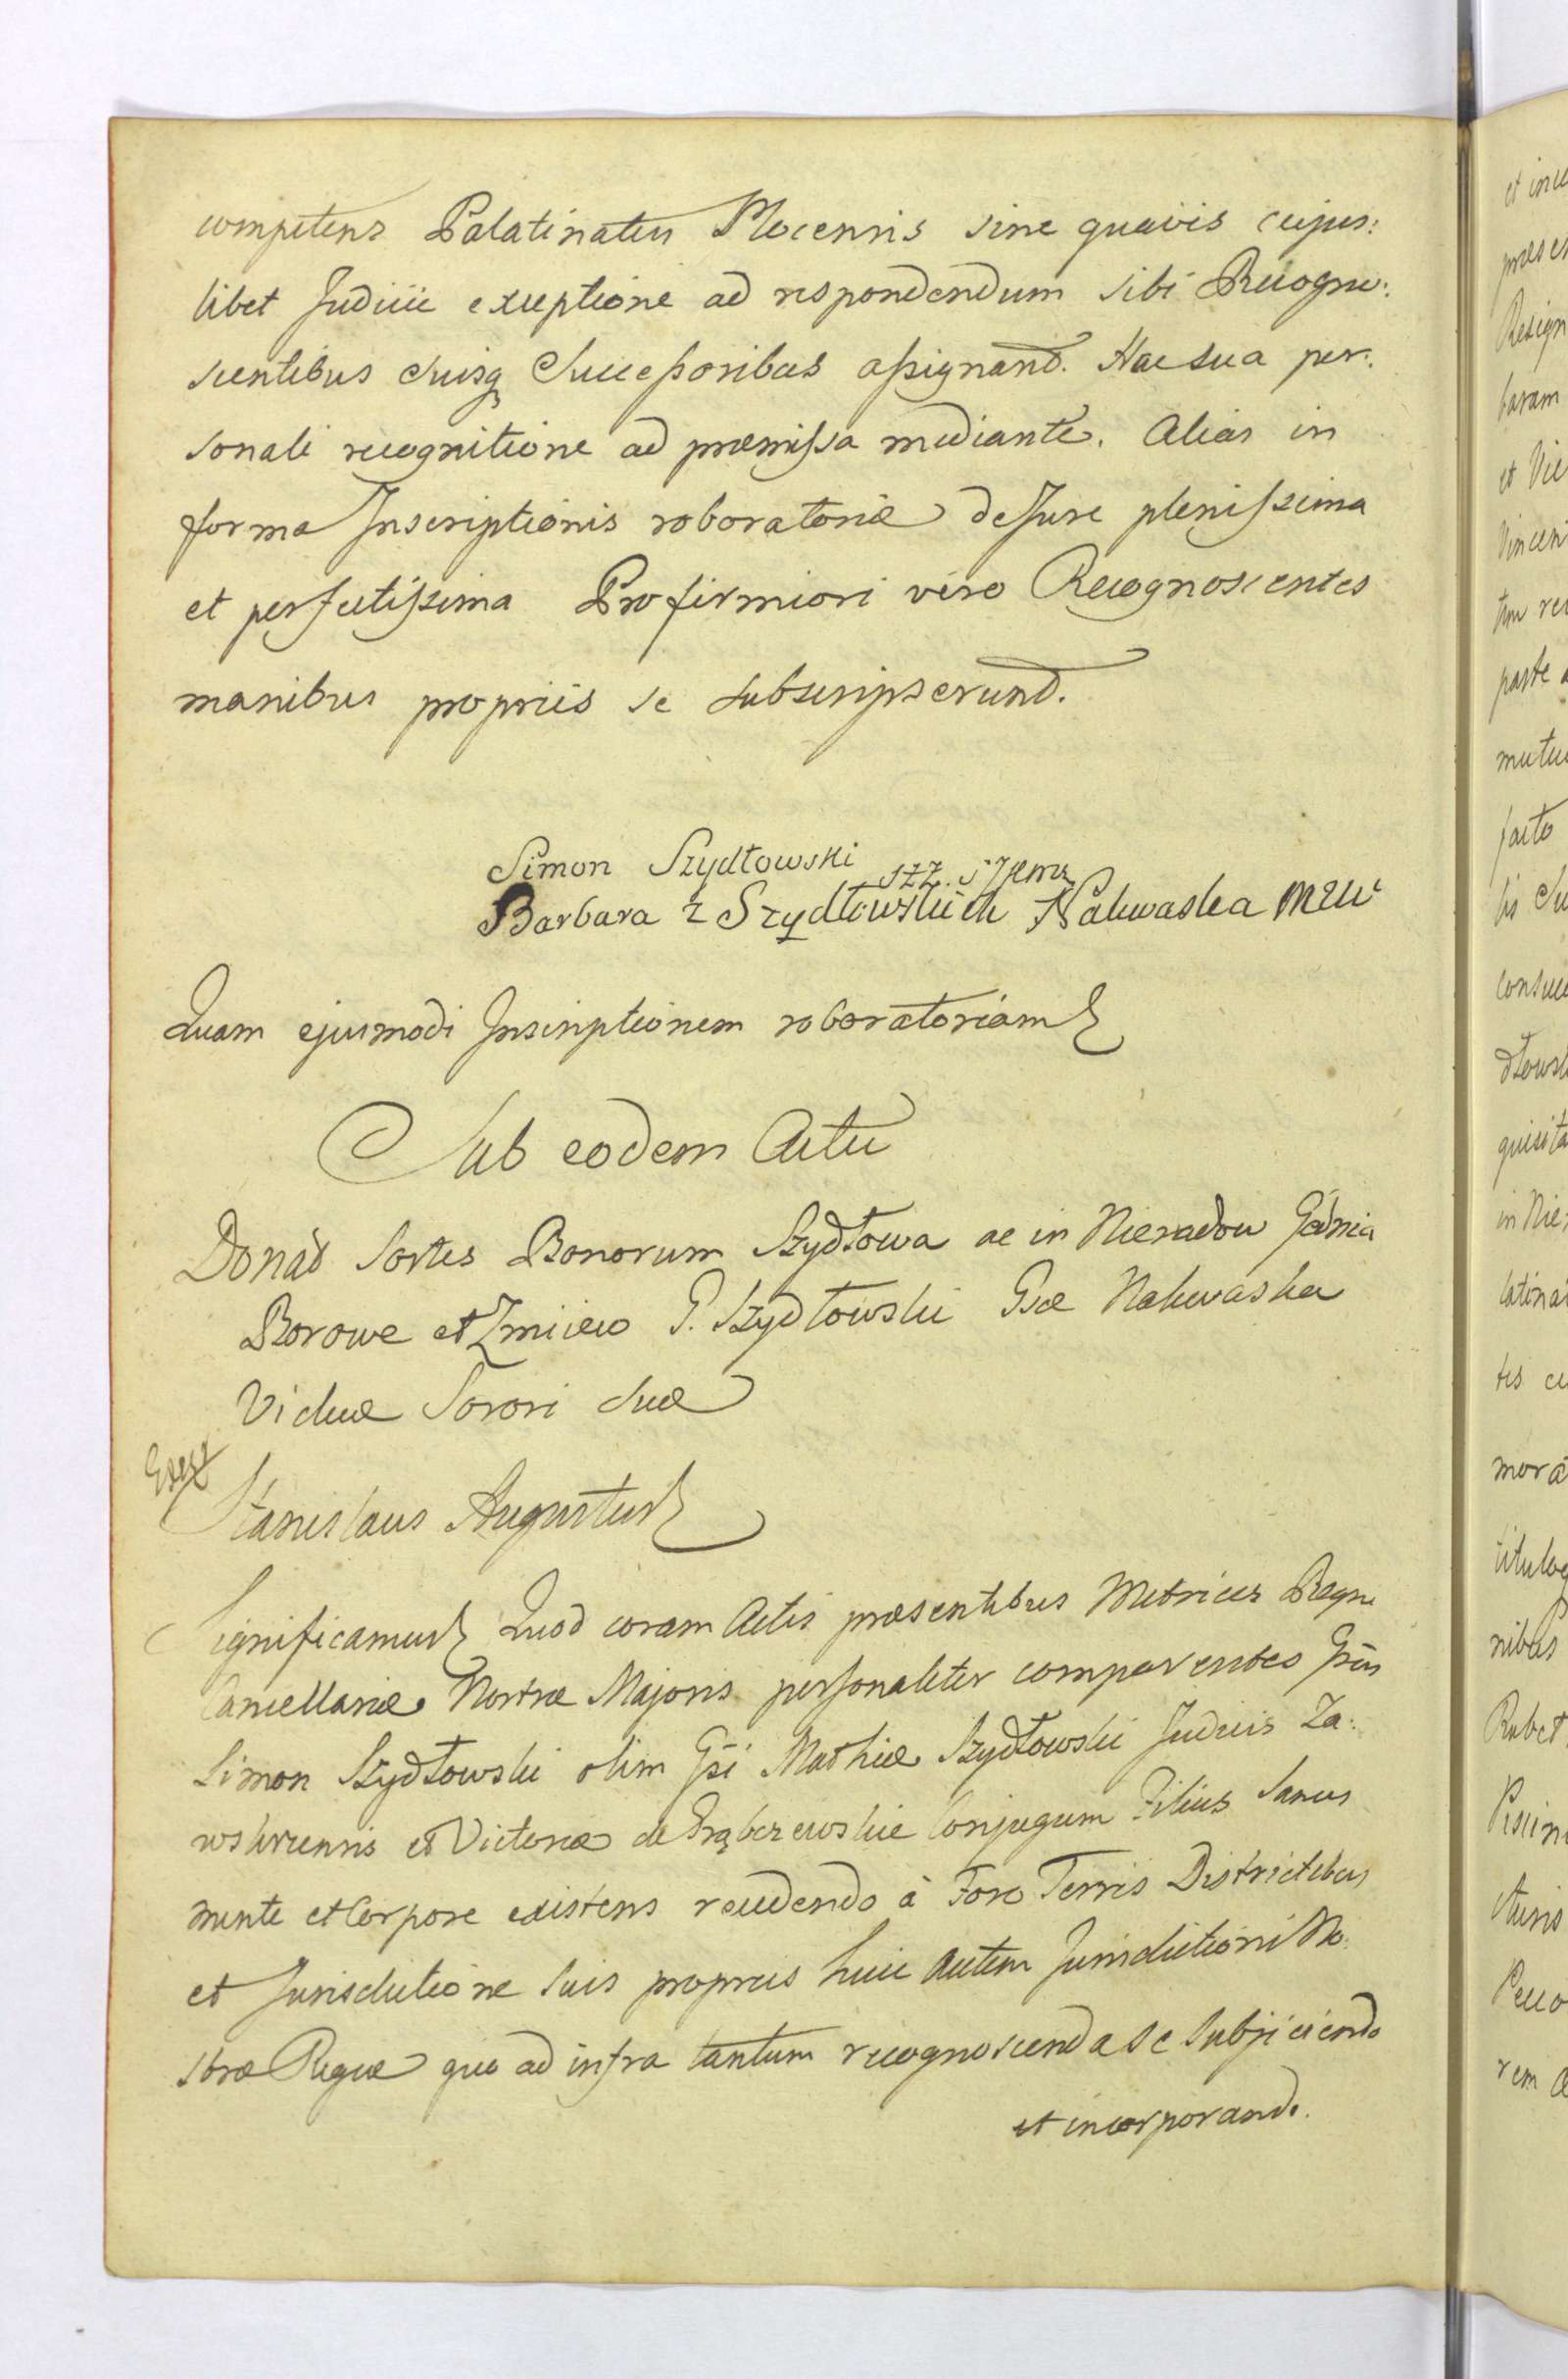 competens Palatinatus Plocensis sine quavis cujus:
libet Judicii exceptione ad respondendum sibi Recogno:
scentibus Suisq Succeßoribus aßignand. Hac sua per:
sonali recognitione ad præmißa mediante. Alias in
forma Inscriptionis roboratoriæ de Jure plenißima
et perfectißima Pro firmiori vero Recognoscentes
manibus propriis se subscripserund.
Simon Szydłowski
Barbara z Szydłowskich Nakwaska mw
Quam ejusmodi Inscriptionem roboratoriam
Sub eodem Actu
Donao Sortes Bonorum Szydłowa ac in Nieradou Gośnia
Borowe et Zmijewo G. Szydłowski Gsæ Nakwaska
Viduæ Sorori Suæ
Stanislaus Augustus
Significamus Quod coram Actis præsentibus Metrices Regni
Cancellariæ Nostræ Majoris personaliter comparentes Gsus
Simon Szydłowski olim Gsi Mathiæ Szydłowski Judicis Za:
wskrzensis et Victoriæ de Grąbczewskie Conjugum Filius Sanus
mente et Corpore existens recedendo à Foro Terris Districtibus
et Jurisdictione suis propriis huic autem Jurisdictioni No:
stræ Regiæ quo ad infra tantum recognoscenda se subjiciendo
et incorporando.